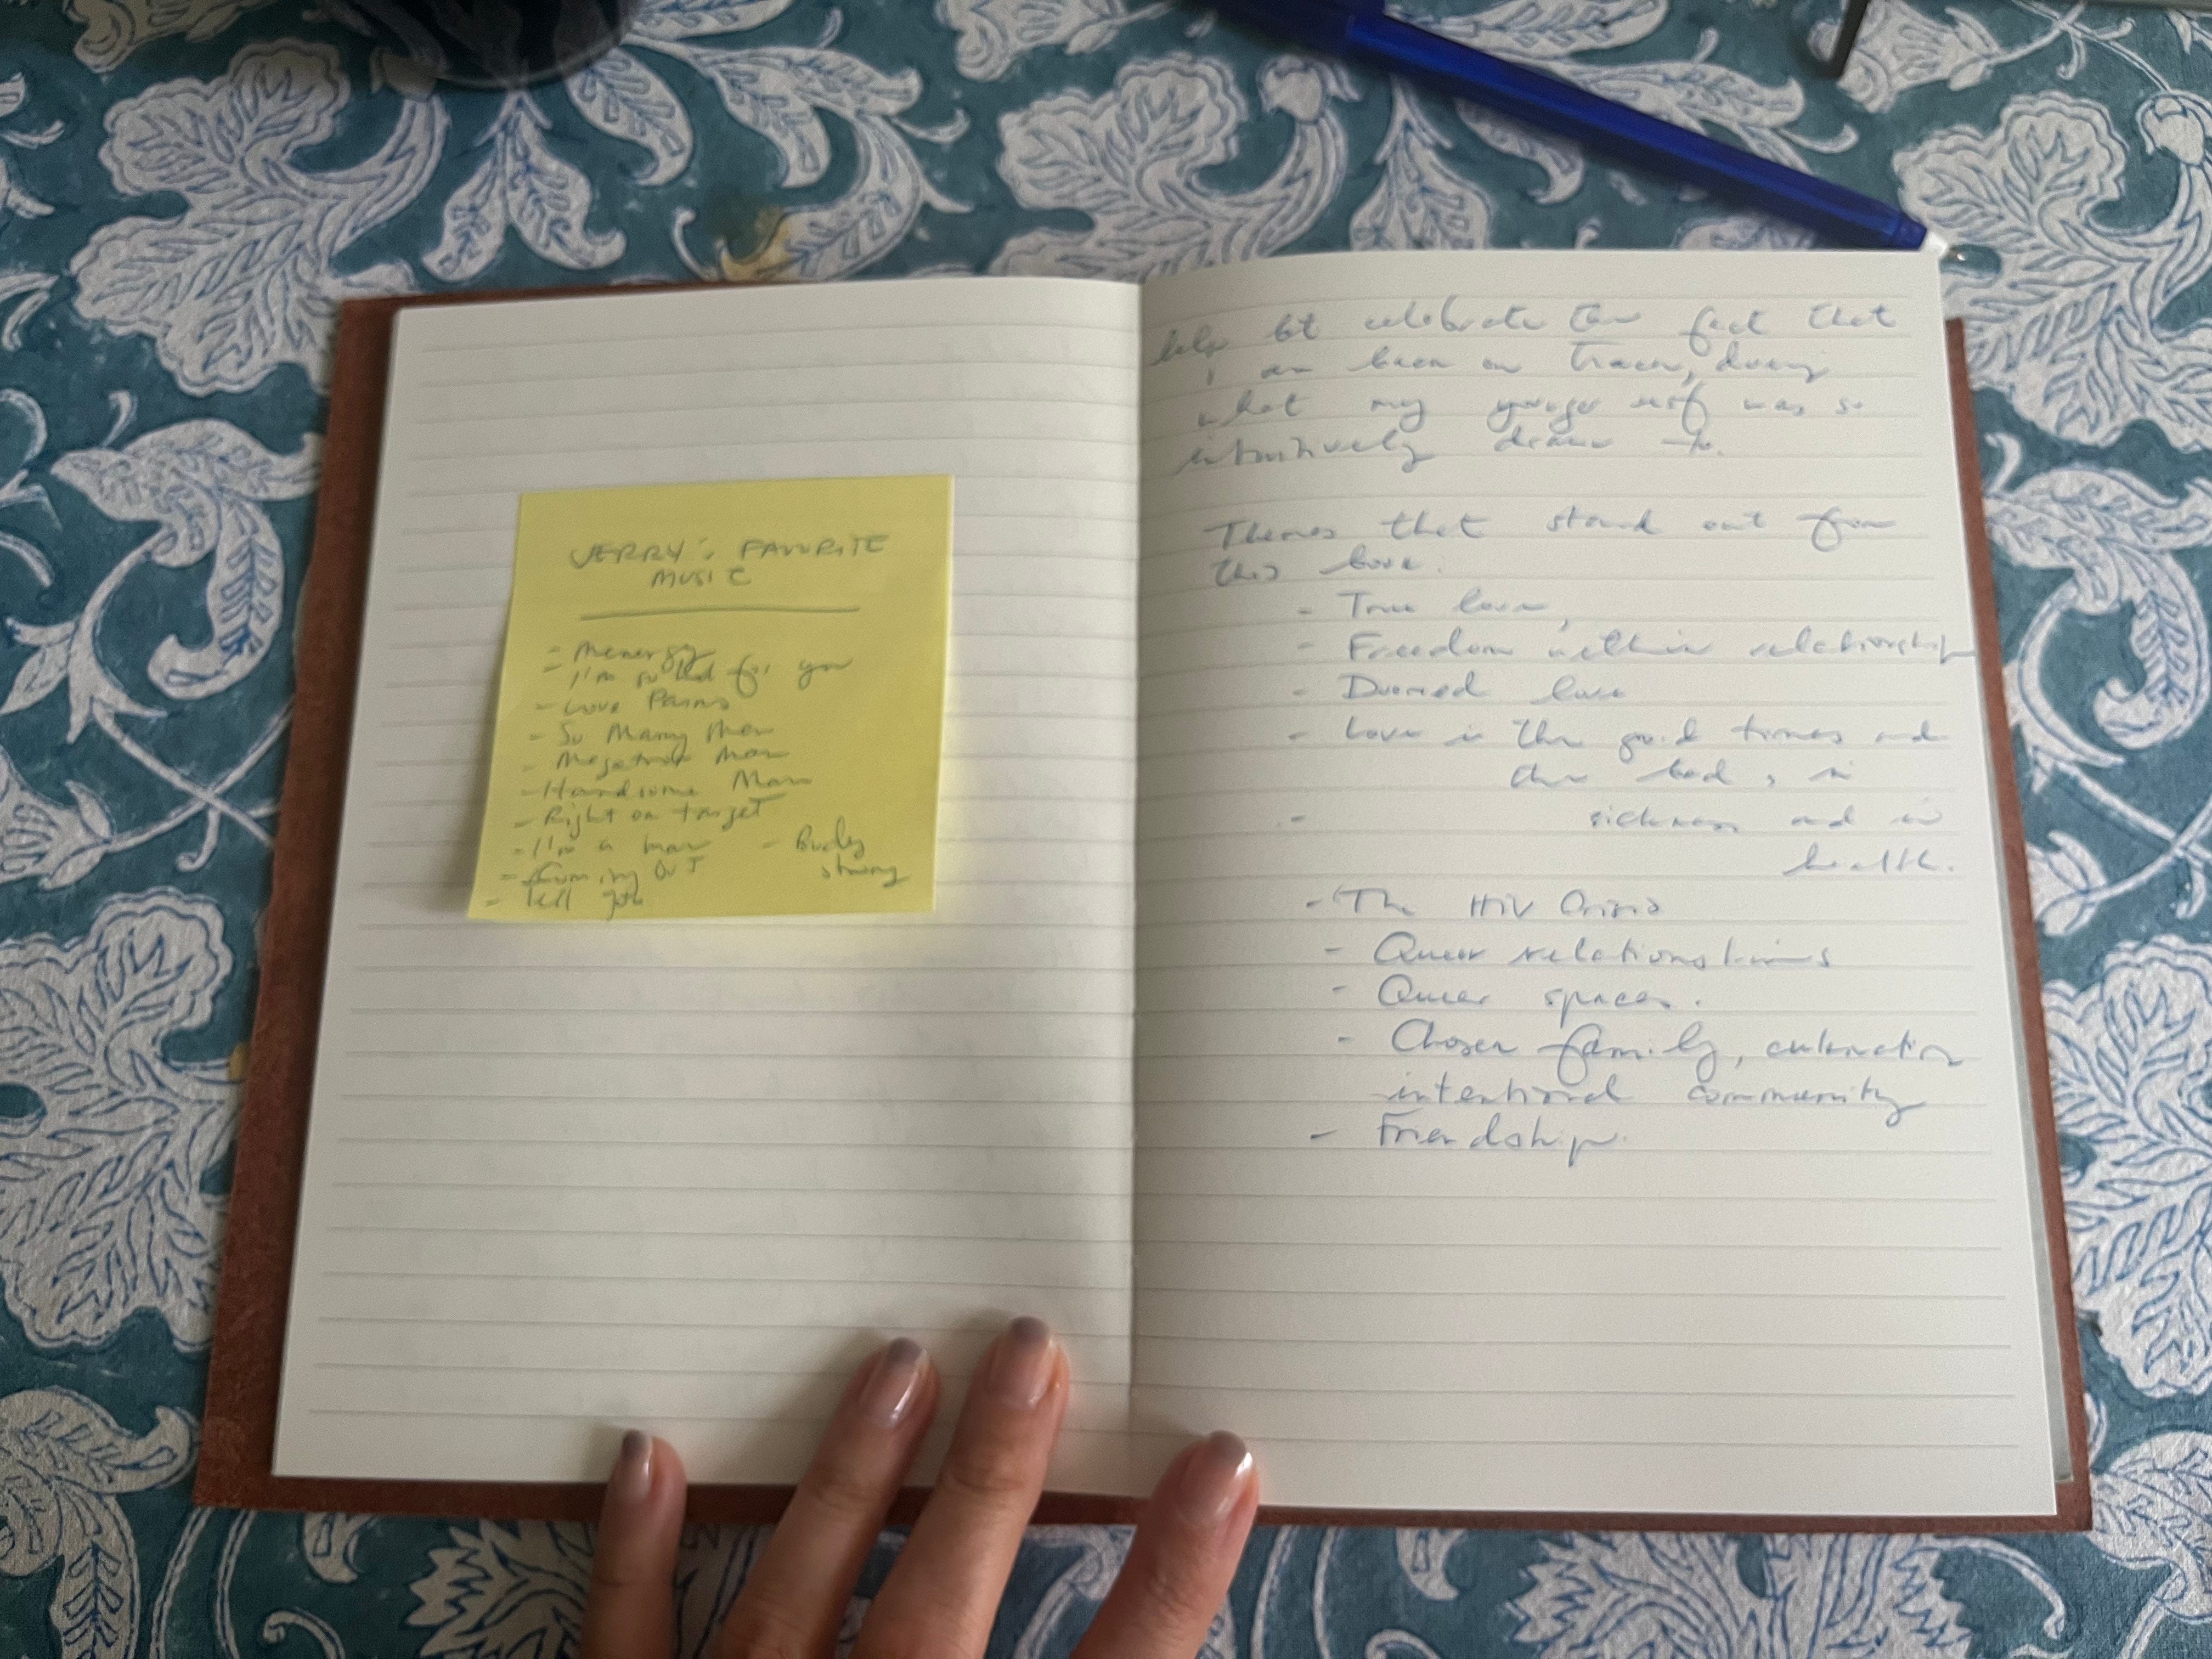 JERRY's FAVORITE
MUSIC
- Menergy
- I'm so hot for you
- Love Pains
- So Many Men
- Megatron Man
- Handsome Man
- Right on target
- I'm a man
- Body
strong
- Coming OUT
- Tell you
help bt celebrate the fact that
I am back on track, doing
what my younger self was so
intuitively drawn to.
Themes that stand out from
this book.
- True love,
- Freedom within relationship
- Doomed love
- Love in the good times and
the bad, in
- sickness and in
health.
- The HIV Crisis
- Queer relationships
- Queer spaces.
- Chosen family,
intentional community
- Friendship.